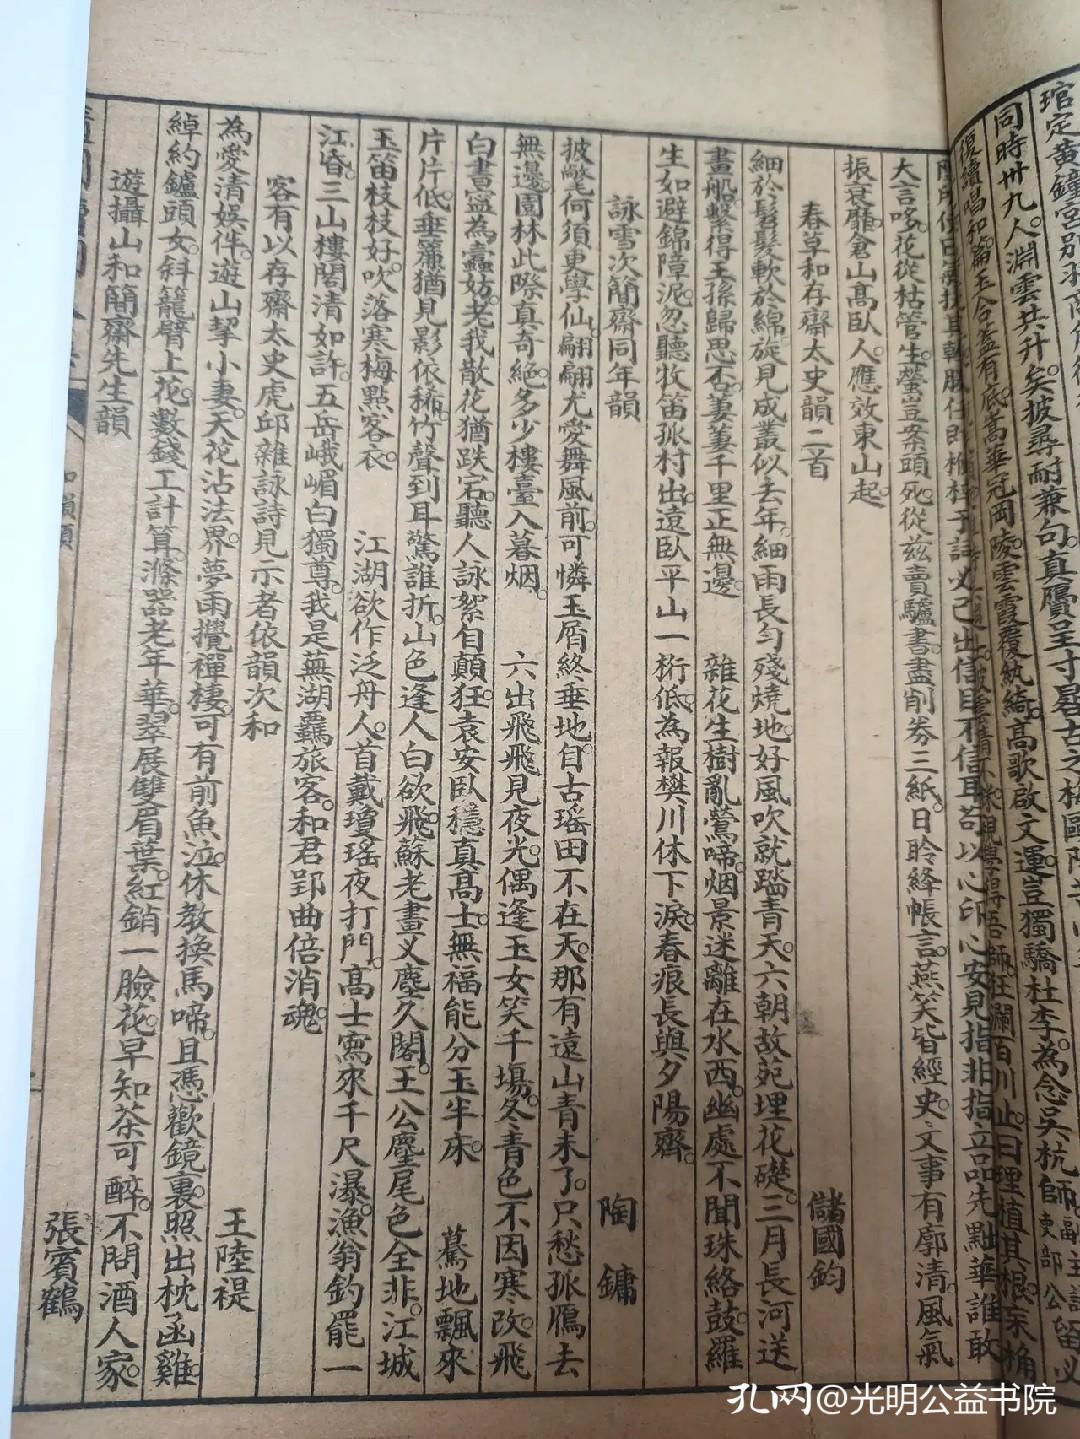 同時卅九人淵雲共升矣披尋耐兼句真贗呈寸晷
復續唱和篇玉合蓋有底嵩華冠岡陵雲霞覆紈綺高歌啟文運豈獨驕杜李為念吳杭師
苟以心印心安見指非指立品先黜華誰敢
大言哆花從枯管生螢豈案頭死從茲賣驢書盡削券三紙日聆絳帳言燕笑皆經史文事有廓清風氣
振衰靡倉山高臥人應效東山起
春草和存齋太史韻二首 儲國鈞
細於髩髮軟於綿旋見成叢似去年細雨長勻殘燒地好風吹就踏青天六朝故苑埋花礎三月長河送
畫船繫得王孫歸思否萋萋千里正無邊 雜花生樹亂鶯啼烟景迷離在水西幽處不聞珠絡鼓羅
生如避錦障泥忽聽牧笛孤村出遠臥平山一桁低為報樊川休下淚春痕長與夕陽齊
詠雪次簡齋同年韻 陶鏞
披氅何須更學仙翩翩尤愛舞風前可憐玉屑終垂地自古瑤田不在天那有遠山青未了只愁孤鴈去
無邊園林此際真奇絕多少樓臺入暮烟 六出飛飛見夜光偶逢玉女笑千塲冬青色不因寒改飛
白書寧為蠹妨老我散花猶跌宕聽人詠絮自顛狂袁安臥穩真高士無福能分玉半床 驀地飄來
片片低垂簾猶見影依稀竹聲到耳驚誰折山色逢人白欲飛蘇老畫叉塵久閣王公麈尾色全非江城
玉笛枝枝好吹落寒梅點客衣 江湖欲作泛舟人首戴瓊瑤夜打門高士寫來千尺瀑漁翁釣罷一
江昏三山樓閣清如許五岳峨嵋白獨尊我是蕪湖羈旅客和君郢曲倍消魂
客有以存齋太史虎邱雜詠詩見示者依韻次和 王陸禔
為愛清娛件遊山挈小妻天花沾法界夢雨攪禪棲可有前魚泣休教換馬啼且憑歡鏡裏照出枕函雞
綽約鑪頭女斜籠臂上花數錢工計算滌器老年華翠展雙眉葉紅銷一臉花早知茶可醉不問酒人家
遊攝山和簡齋先生韻 張賓鶴
孔网@光明公益书院